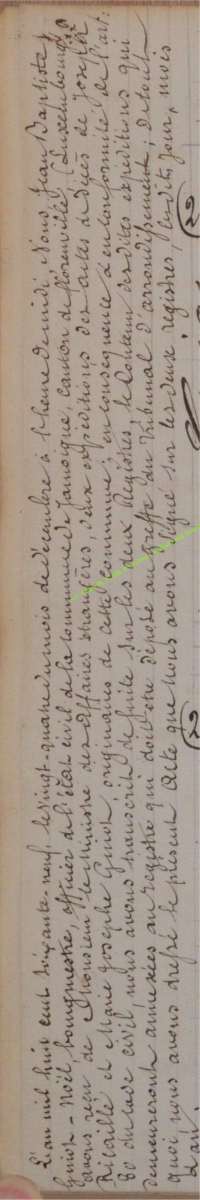 L'an mil huit cent soixante-neuf, le vingt-quatre du mois de décembre à l'heure de midi Nous Jean Baptiste
Ginot-Noël, bourgmestre, officier de l'état civil de la commune de Jamoigne, canton de florenville (Luxembourg)
avons reçu de Monsieur le Ministre des affaires étrangères, deux expéditions des actes de décès de Joseph
Ricaille et Marie Josephe Ginot originaires de cette commune; en conséquence & en conformité de l'art:
80 du Code civil, nous avons transcrit de suite sur les deux Registres, le Contenu desdites expéditions qui
demeureront annexées au registre qui doit être déposé au greffe du Tribunal d'arrondissement; de tout
quoi nous avons dressé le présent acte que nous avons signé sur les deux registres, lesdits jour, mois
& an.